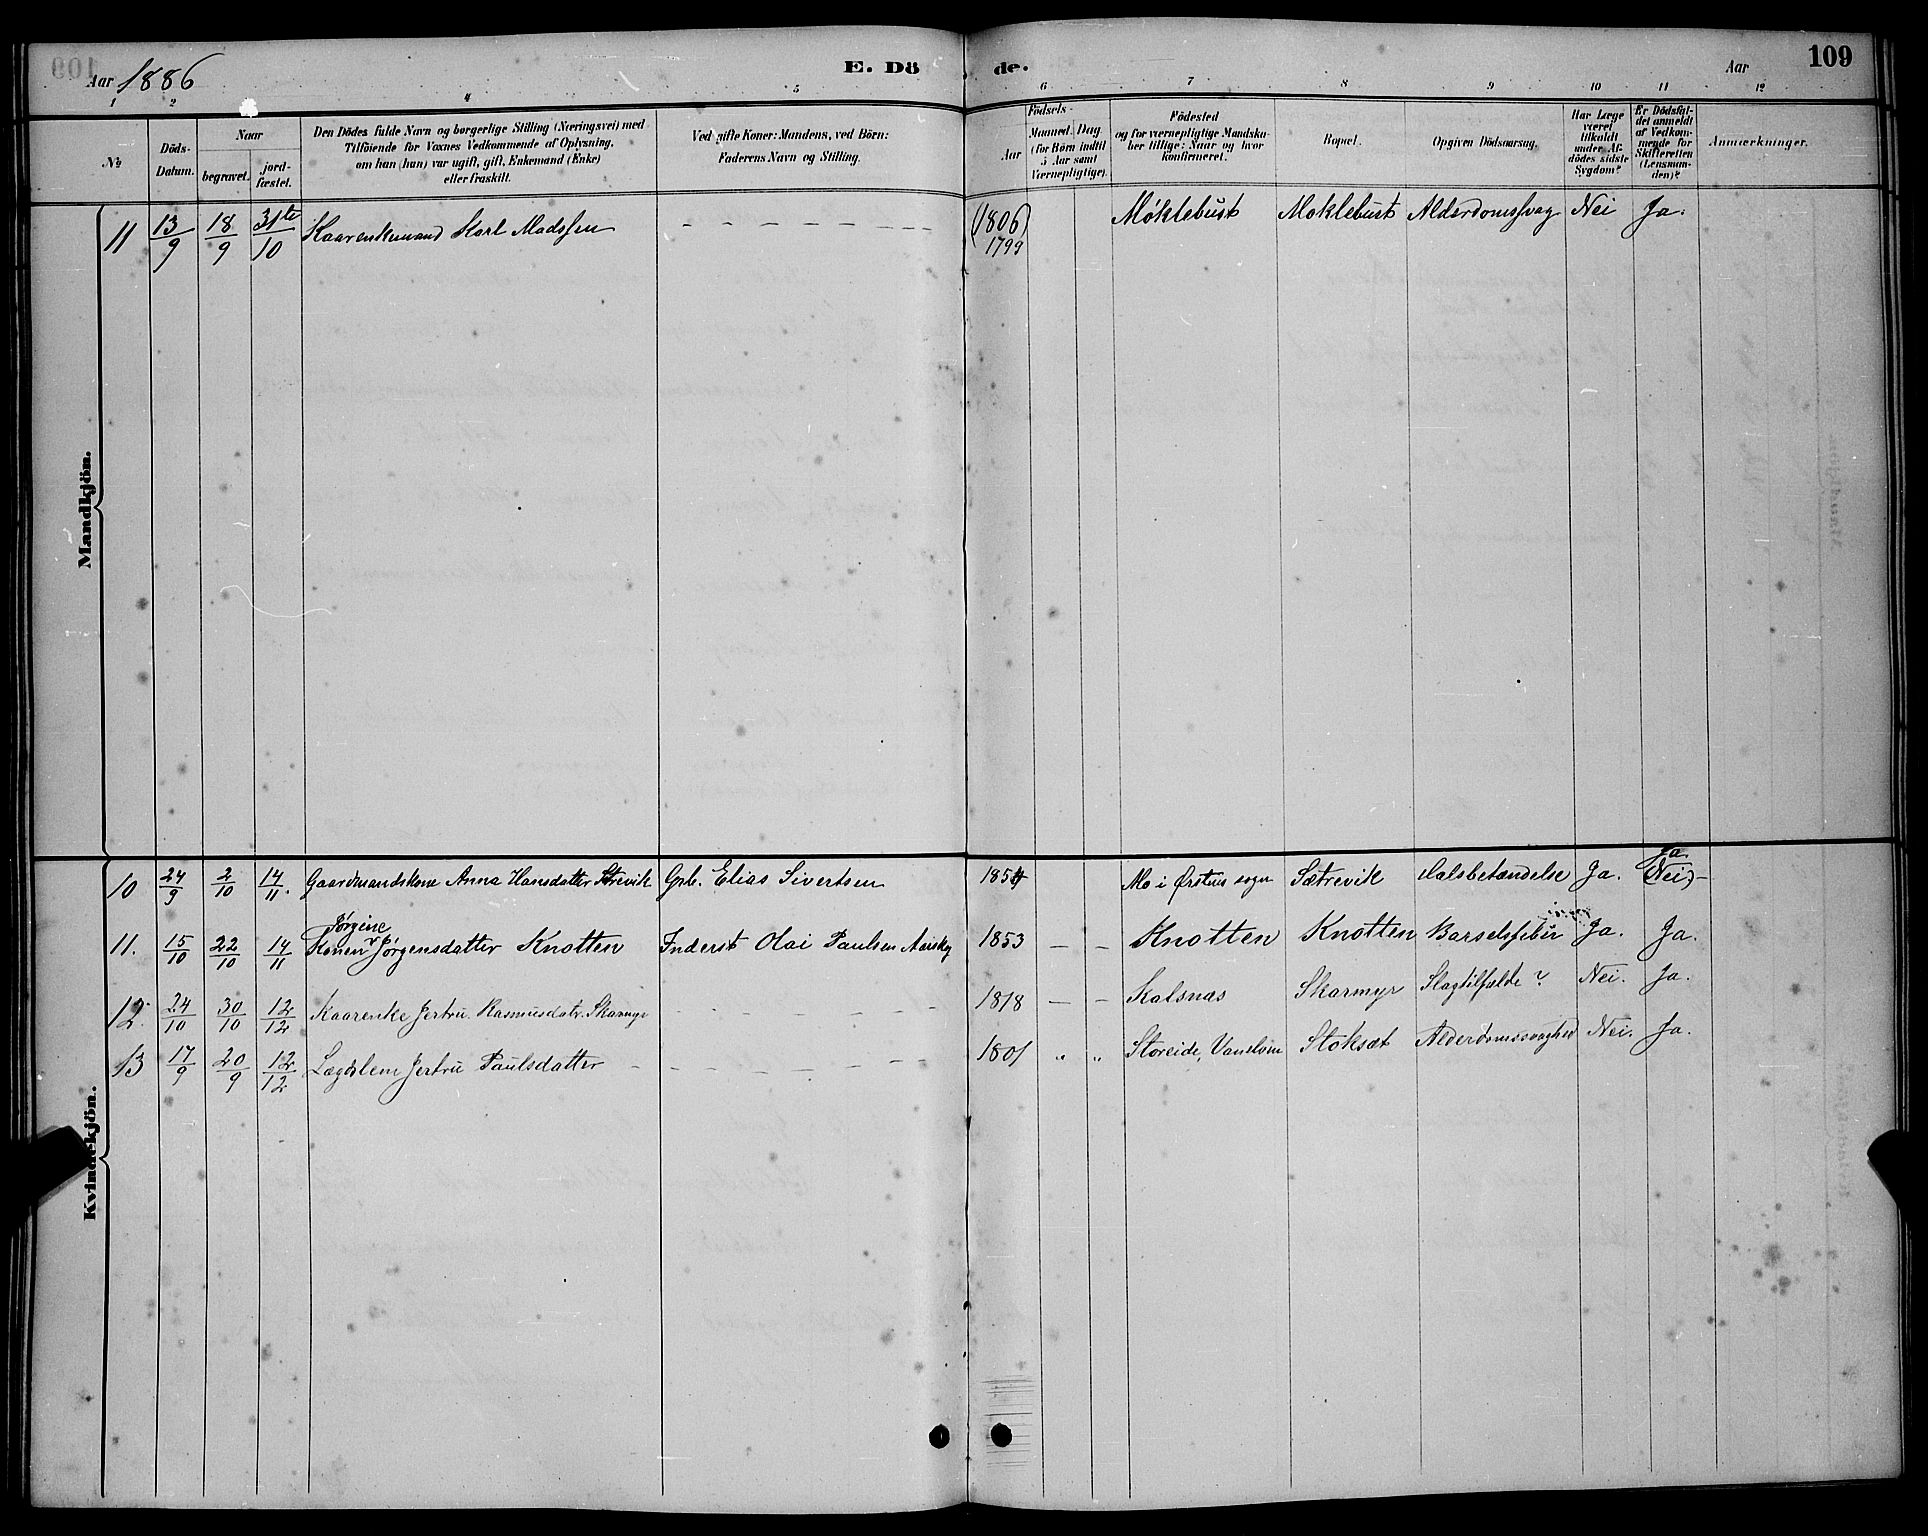 Aar 1886
E. Döde.
Aar
109
1 2 4 5 6 7 8 9 10 11 12
No
Döds-Datum.
Naar
begravet.
jordfæstet.
Den Dödes fulde Navn og borgerlige Stilling (Næringsvei) med
Tilföiende for Voxnes Vedkommende af Oplysning,
om han (hun) var ugift, gift, Enkemand (Enke)
eller fraskilt.
Ved gifte Koner: Mandens, ved Börn:
Faderens Navn og Stilling.
Födsels-
Aar
Maaned. Dag
(for Börn indtil
5 Aar samt
Værnepligtige).
Födested
og for værnepligtige Mandskaber
tillige: Naar og hvor
konfirmeret.
Bopæl.
Opgiven Dödsaarsag.
Har Læge
været
tilkaldt
under Afdödes
sidste
Sygdom?
Er Dödsfaldet
anmeldt
af Vedkommende
for
Skifteretten
(Lensmanden)?
Anmærkninger.
Mandkjön.
11 13/9 18/9 31te/10 Kaarenkemand Karl Madssen - - - - - - (1806) 1799 Møklebust Moklebust Alderdomssvag Nei Ja.
Kvindekjön.
10 24/9 2/10 14/11. Gaardmandskone Anna Hansdatter Sætrevik Grb. Elias Sivertsen 1854 Mo i Ørstens sogn Sætrevik Halsbetændelse Ja. Ja (Nei)-
11. 15/10 22/10 14/11 Konen Jørgine Jørgensdatter Knotten Inderst Olai Paulsen 1853 — – Knotten Knotten Barselsfeber Ja. Ja.
12. 24/10 30/10 12/12 Kaarenke Jertru Rasmusdatr. Skarmyr - - - - - - 1818 — – Kalsnæs Skarmyr Slagtilfælde? Nei. Ja.
13 17/9 20/9 12/12 Lægdslem Jertru Paulsdatter - - - - - - 1801 " " Storeide, Vanelven Stoksæt Alderdomssvaghed Nei. Ja.